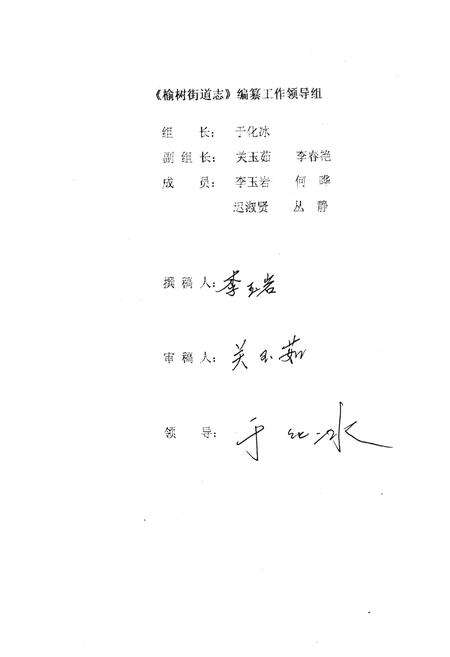 《榆树街道志》编纂工作领导组
组 长： 于化冰
副 组 长： 关玉茹 李春艳
成 员： 李玉岩 何 晔
迟淑贤 丛 静
撰 稿 人：李玉岩
审 稿 人：关玉茹
领 导：于化冰